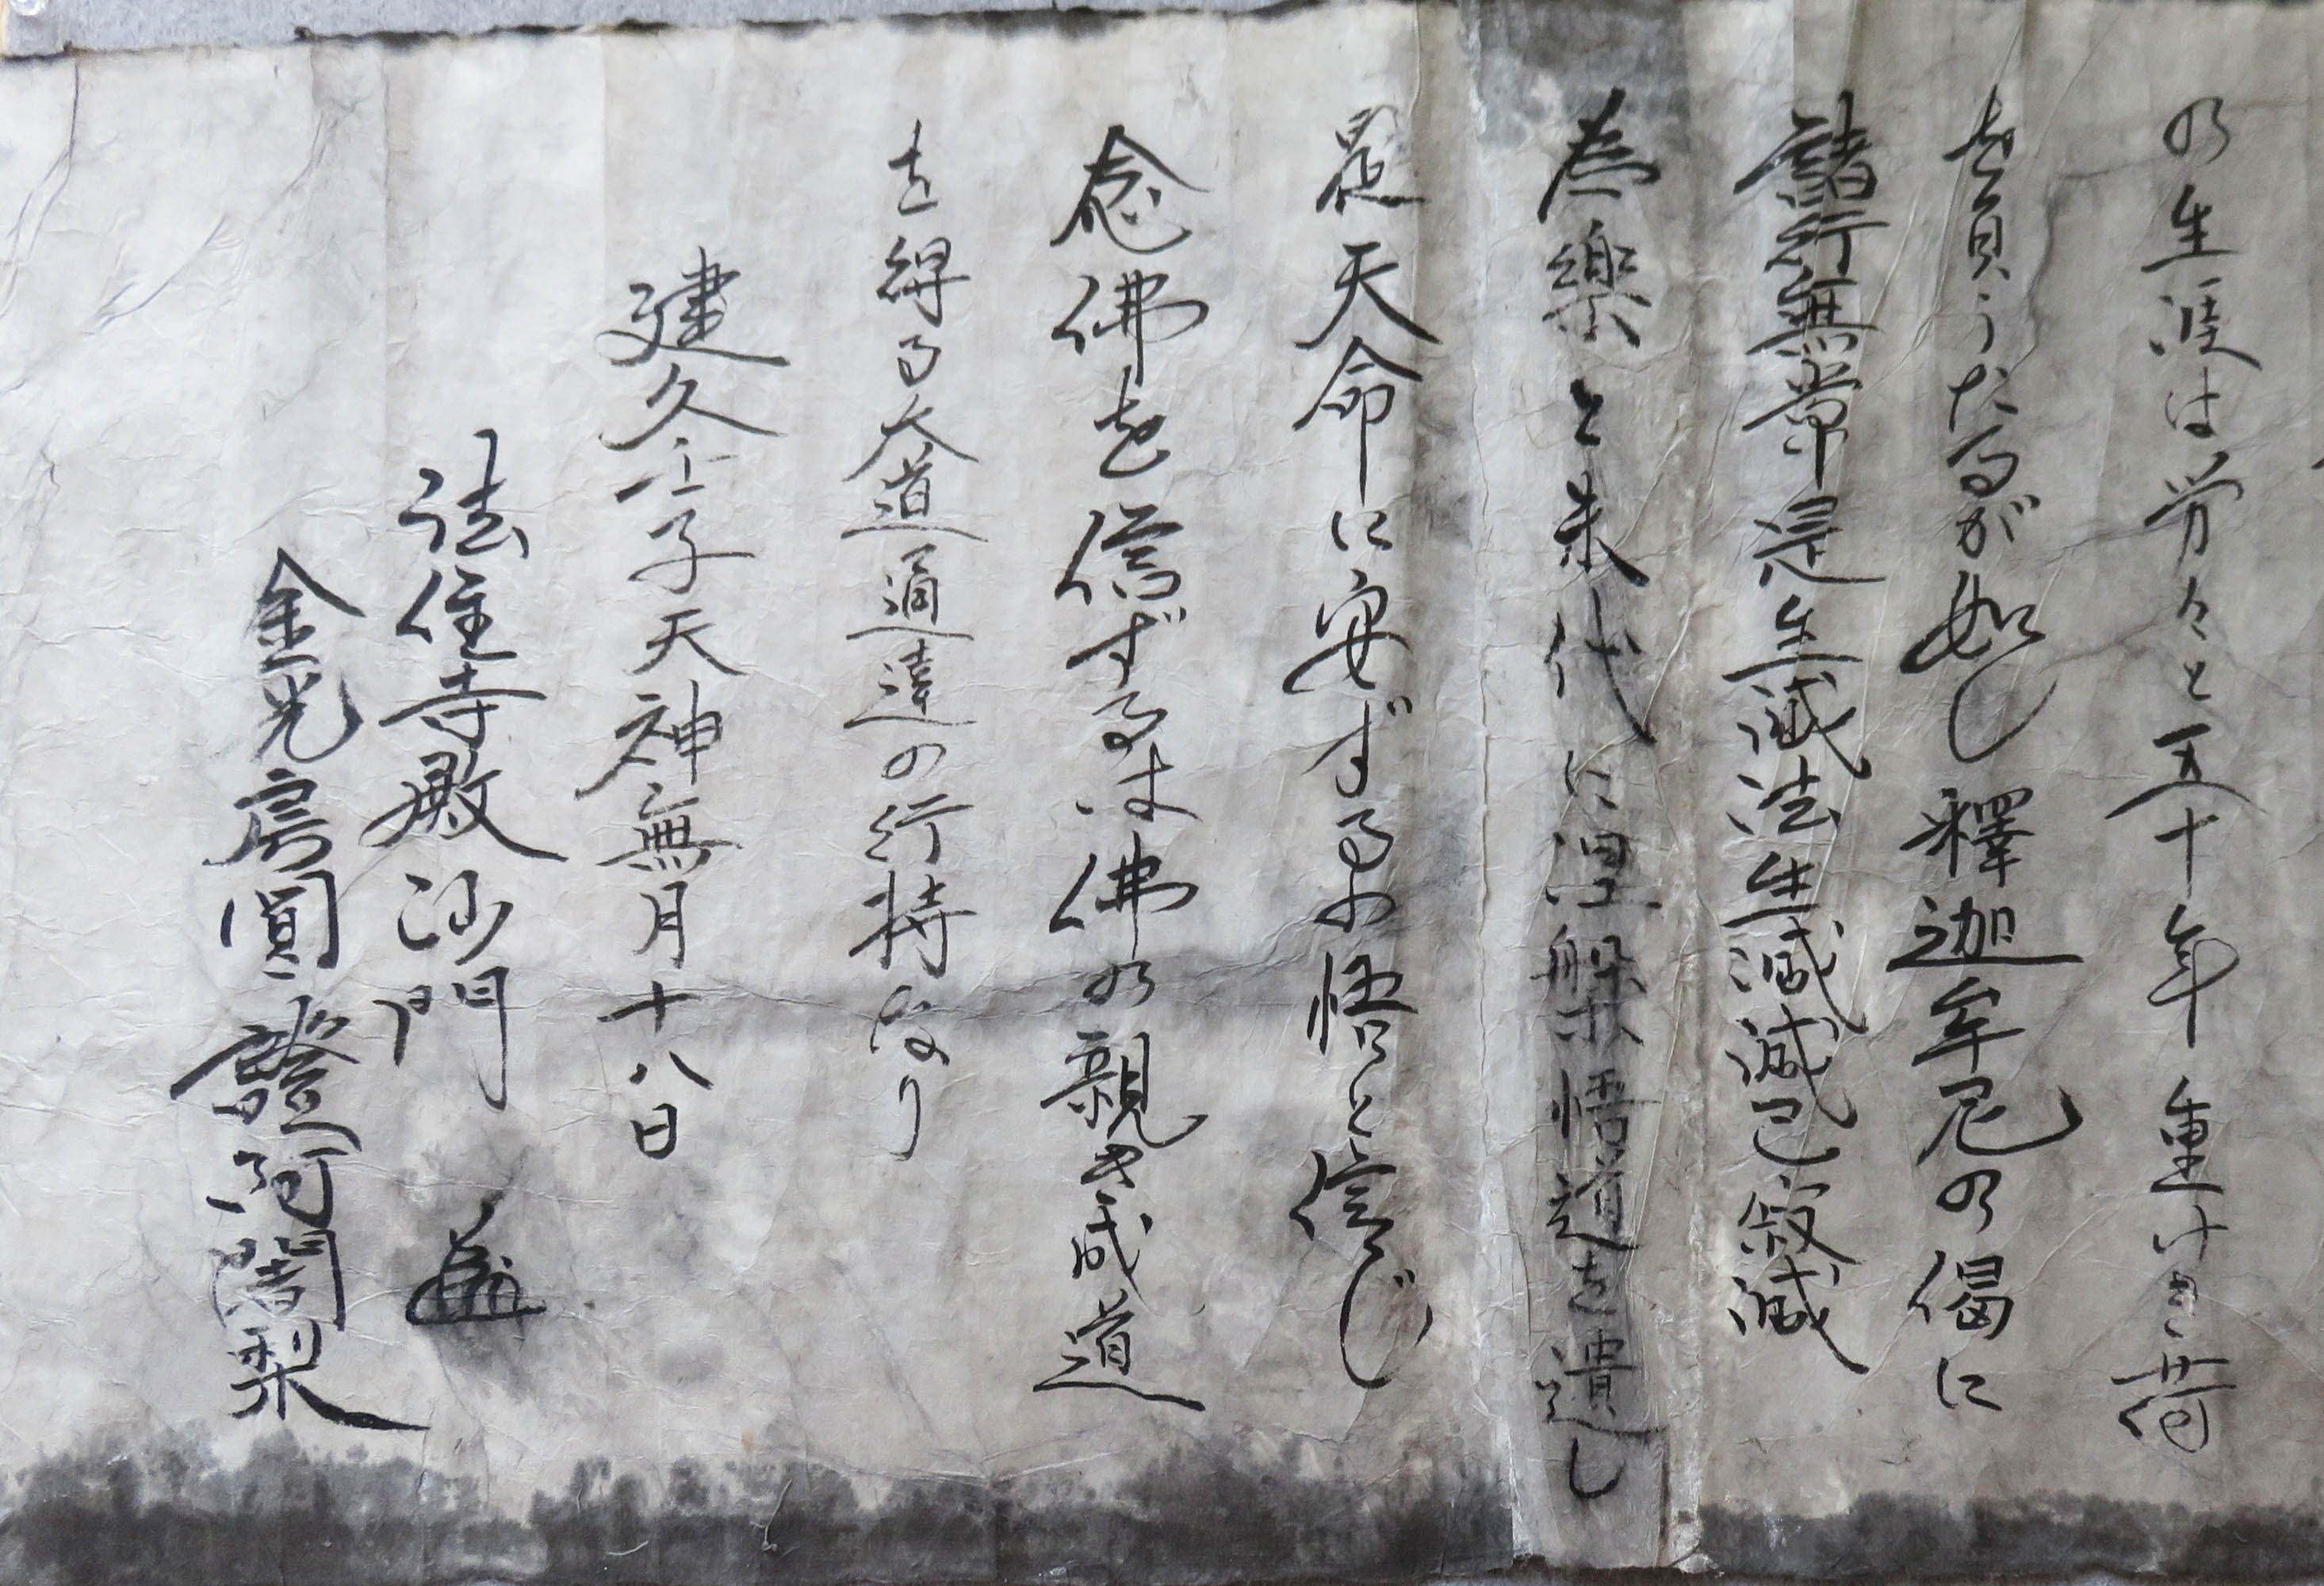 の生涯は労々と五十年重けき荷
を負うたるが如し釋迦牟尼の偈に
諸行無常是生滅法生滅滅已寂滅
為樂と末代に涅槃悟道を遺し
是天命に安ずるが悟と信じ
念佛を信ずるは佛の親き成道
を得る大道通達の行持なり
建久壬子天神無月十八日
法住寺殿沙門
金光房圓證阿闍梨